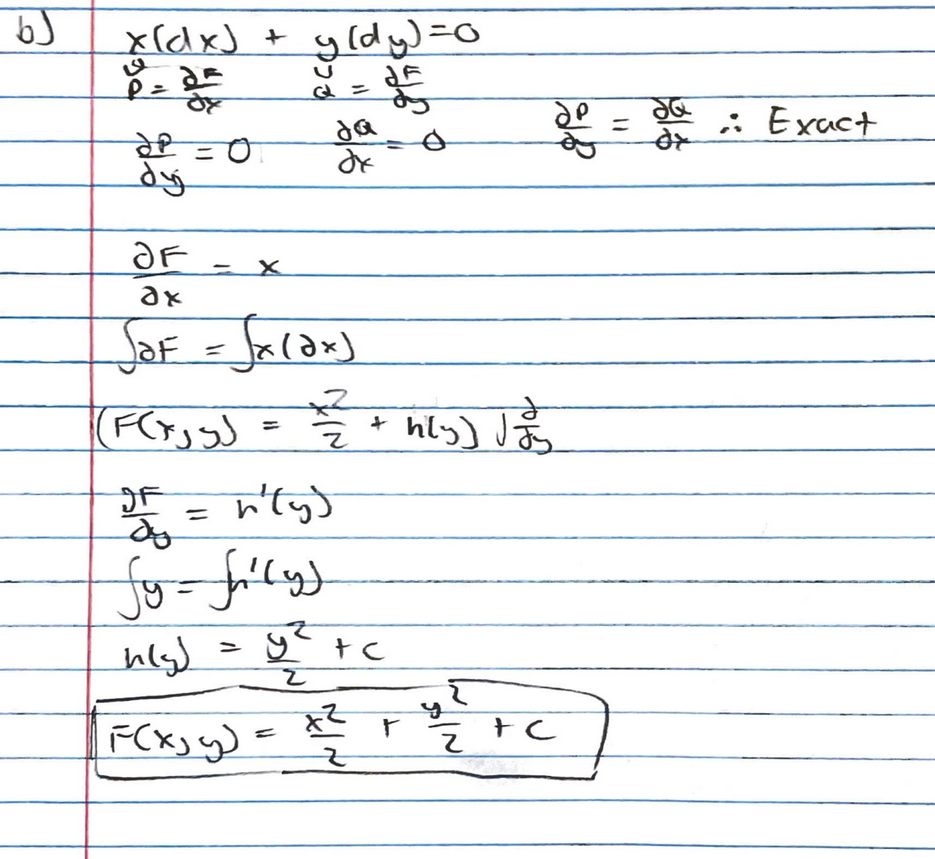 b) x(dx) + y(dy)=0
P = ∂F/∂x Q = ∂F/∂y
∂P/∂y = 0 ∂Q/∂x = 0 ∂P/∂y = ∂Q/∂x ∴ Exact
∂F/∂x = x
∫∂F = ∫x(∂x)
(F(x,y) = x²/2 + h(y)) ∂/∂y
∂F/∂y = h'(y)
∫y = ∫h'(y)
h(y) = y²/2 + c
F(x,y) = x²/2 + y²/2 + c